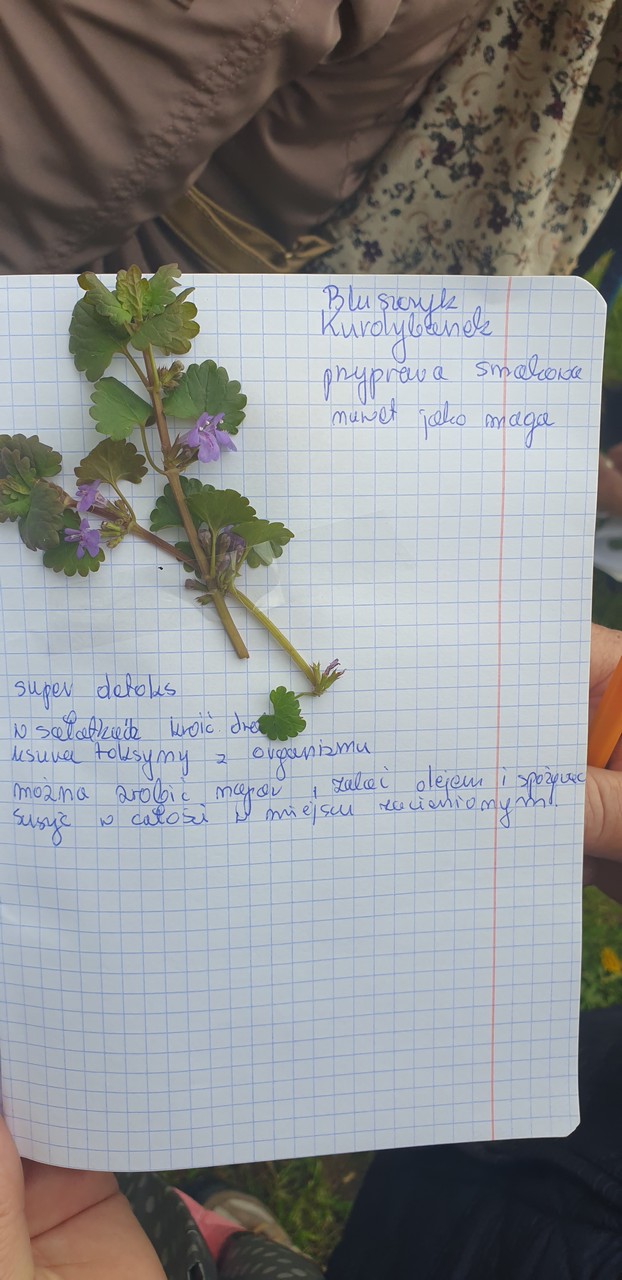 Bluszczyk
Kurdybanek
przyprawa smakowa
nawet jako maga
super detoks
w sałatkach kroić
usuwa toksyny z organizmu
można zrobić , zalać olejem i spożywać
suszyć w całości w miejscu zacienionym